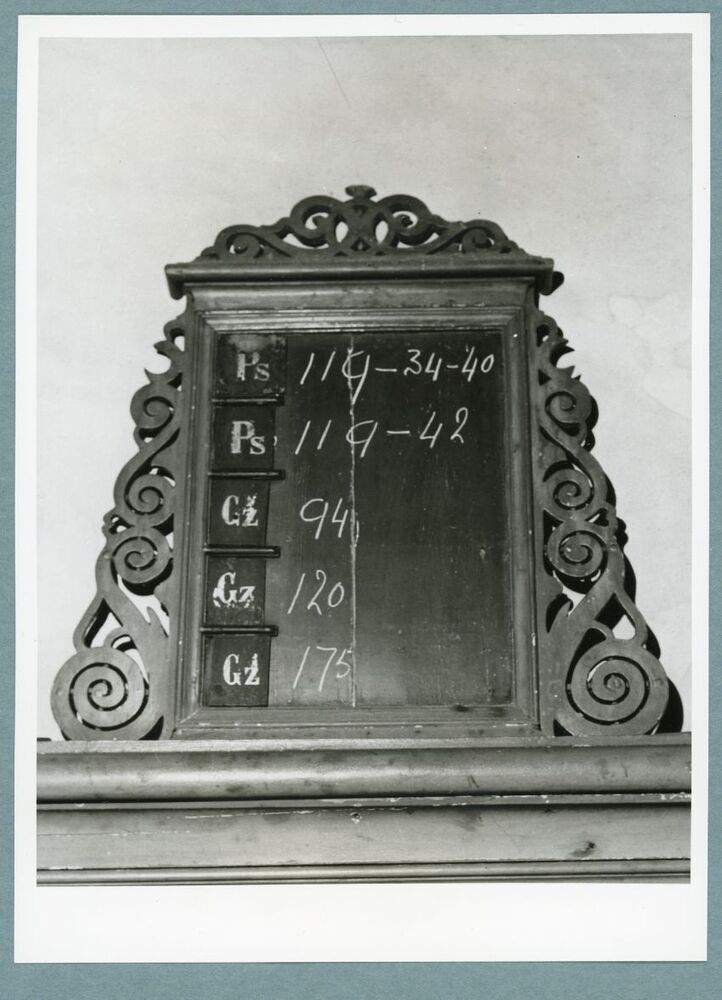 Ps 119-34-40
Ps 119-42
Gz 94
Gz 120
Gz 175